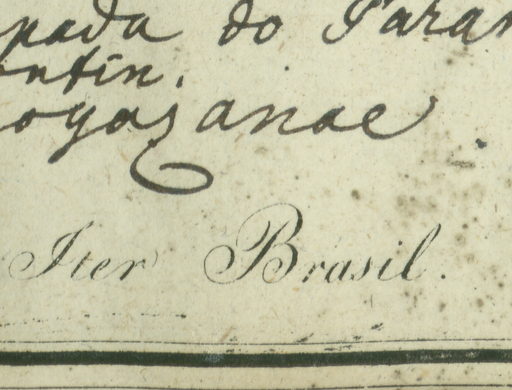 pada do Paran
ntin.
oyazanae.
Iter Brasil.